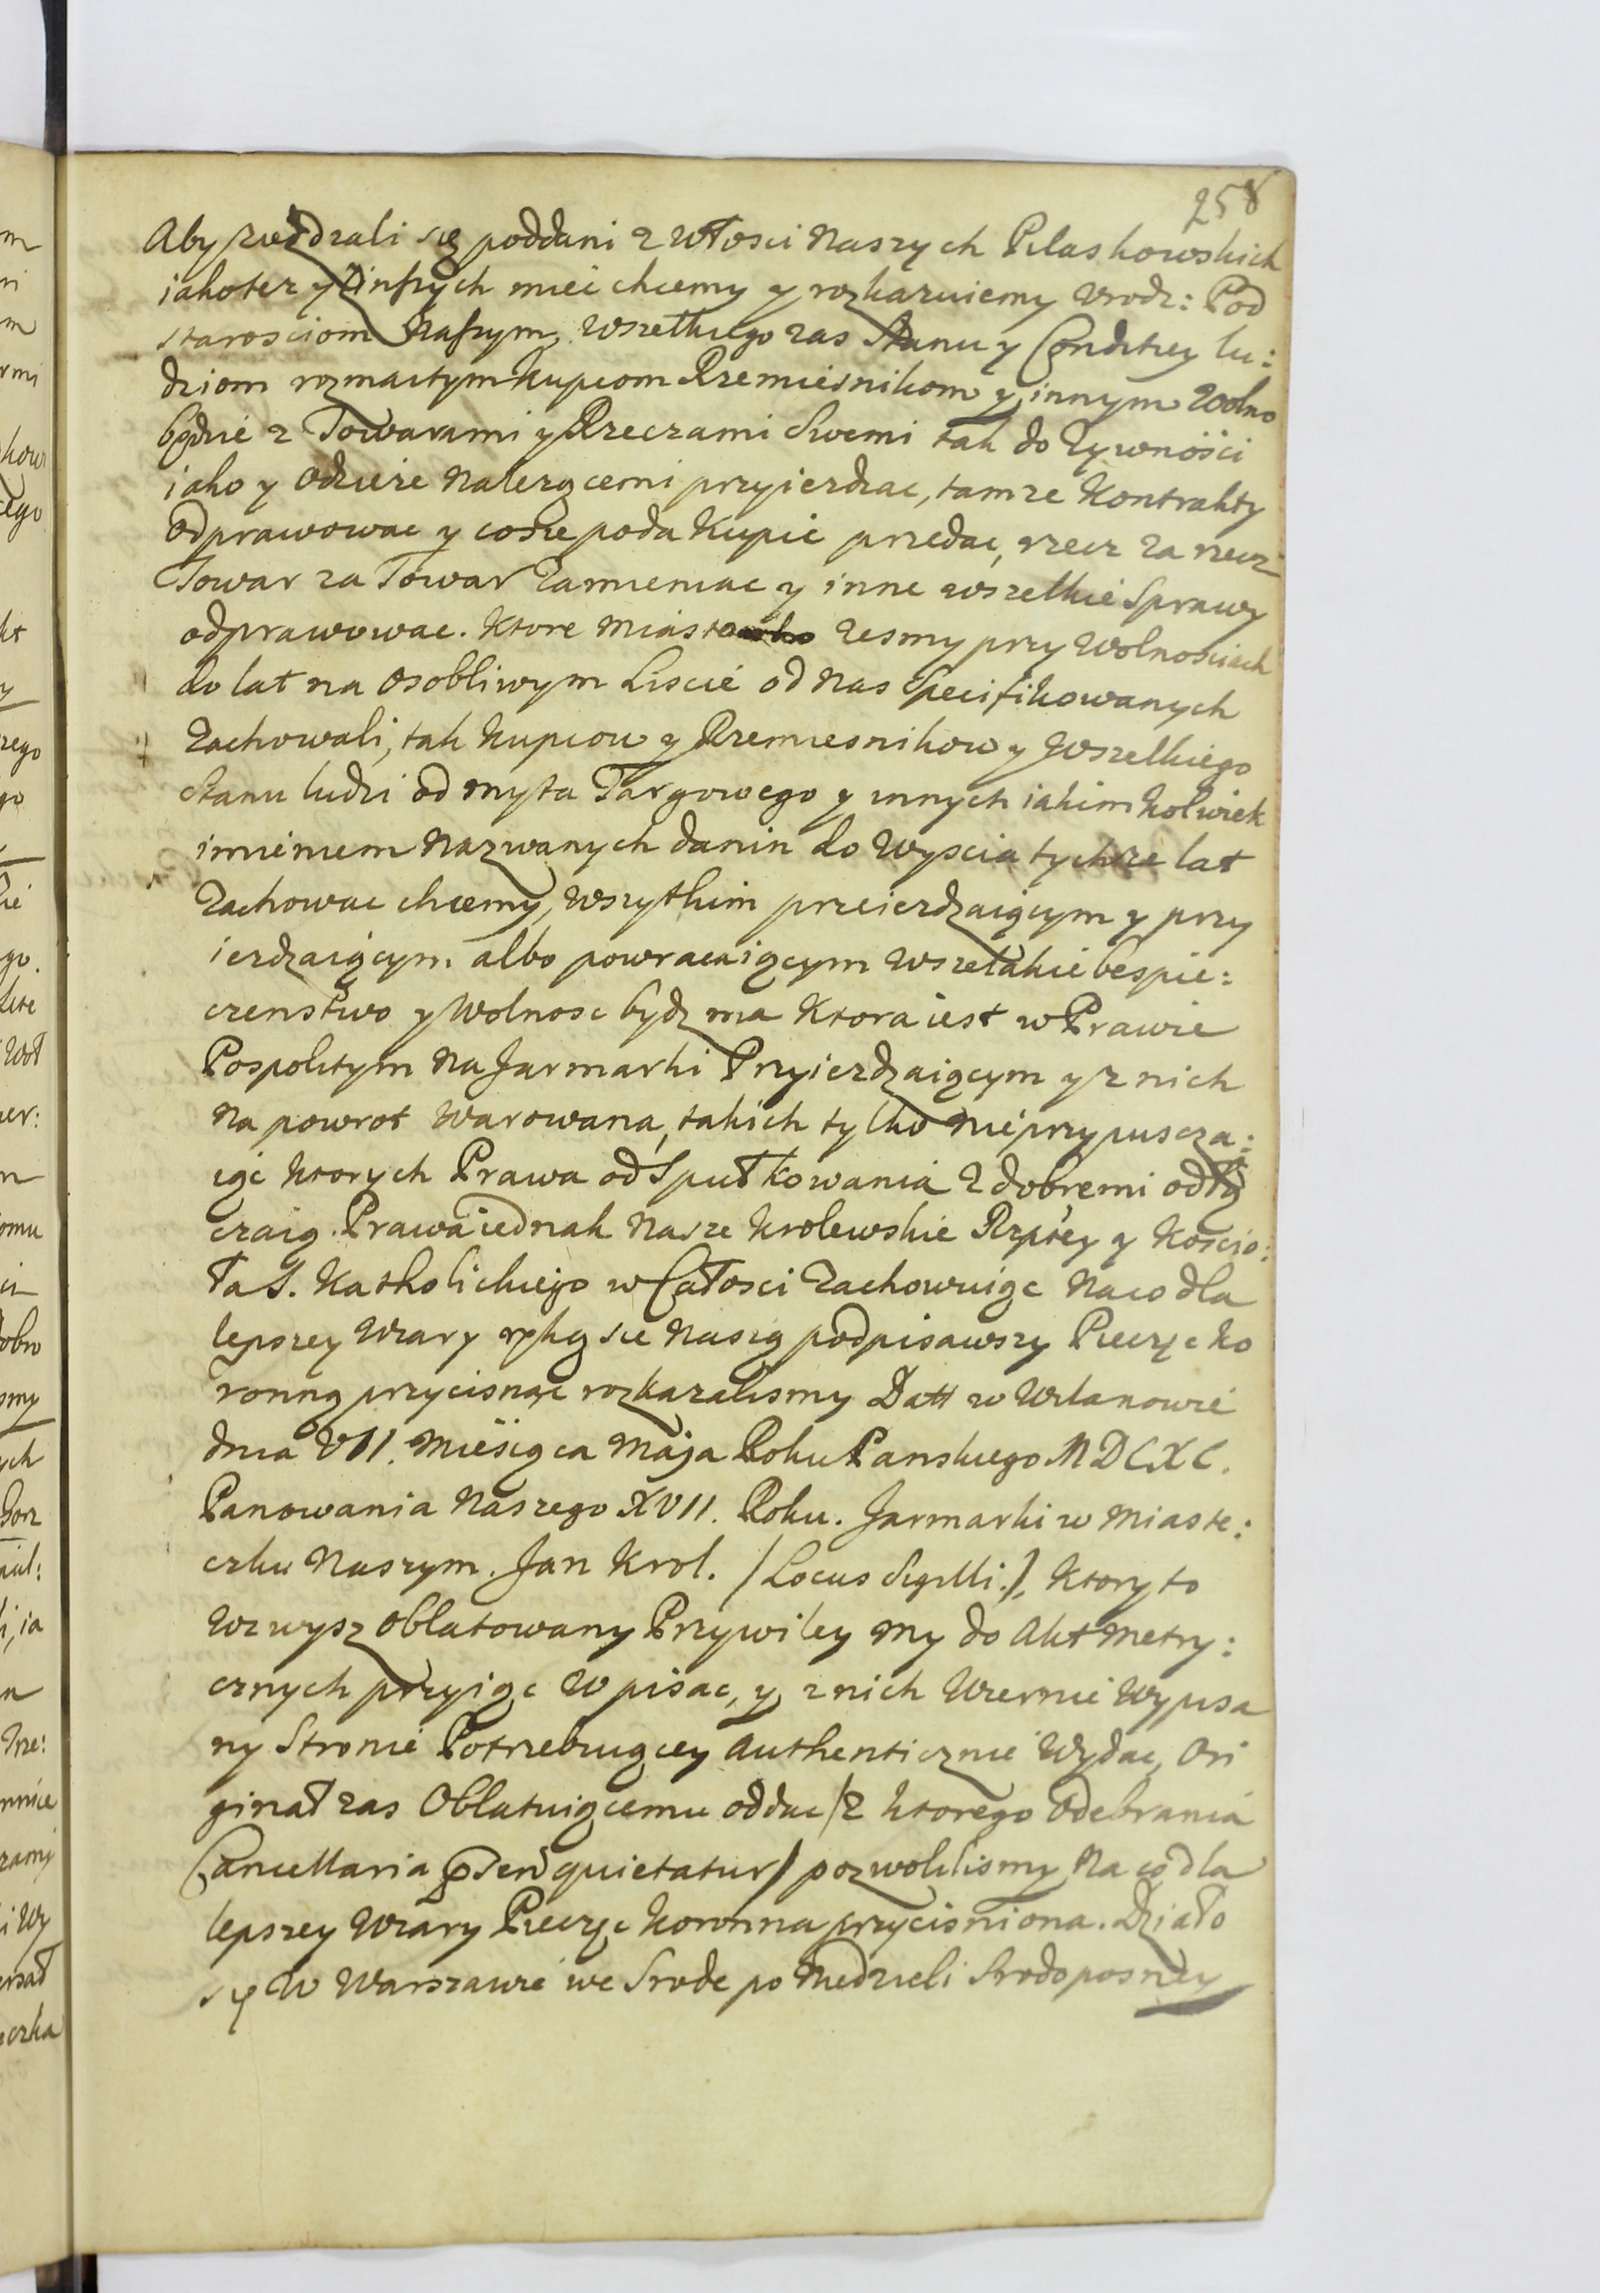 258
Aby zieżdzali się poddani z włosci Naszych Pilaskowskich
iakotez y z inszych miec chcemy y rozkazuiemy Urodz: Pod
starosciom Naszym, Wszelkiego zas Stanu y Conditiey lu:
dziom rozmaitym Kupcom Rzemiesnikom y innym Wolno
będzie z Towarami y Rzeczami Swemi tak do Zywnosci
iako y Odzieże Nalezącemi przyiezdzac, tamze Kontrakty
Odprawowac y co sie poda Kupic przedac, rzecz za rzecz
Towar za Towar Zamieniac y inne wszelkie Sprawy
odprawowac. Ktore Miasto zesmy przy Wolnosciach
do lat na Osobliwym Liscie od Nas Specifikowanych
Zachowali, tak Kupcow y Rzemiesnikow y Wszelkiego
Stanu ludzi od Myta Targowego y innych iakimkolwiek
imieniem Nazwanych danin do Wyscia tychze lat
Zachowac chcemy, Wszytkim przeiezdzaiącym y przy
iezdzaiącym albo powracaiącym Wszelakie bespie:
czenstwo y Wolnosc bydz ma Ktora iest w Prawie
Pospolitym Na Jarmarki Przyiezdzaiącym y z nich
Na powrot Warowana, takich tylko Nieprzypuscza:
iąc Ktorych Prawa od Społkowania z dobremi odłą
czaią. Prawa iednak Nasze Krolewskie Rzptey y Koscio:
ła S. Katholickiego w Całosci Zachowuiąc Na co dla
lepszey Wiary ręką sie Naszą podpisawszy Pieczęc Ko
ronną przycisnąc rozkazalismy Datt w Wilanowie
dnia VII. Miesiąca Maja Roku Panskiego MDCXC.
Panowania Naszego XVII. Roku. Jarmarki w Miaste:
czku Naszym. Jan Krol. /Locus Sigilli./ Ktory to
Wzwysz Oblatowany Przywiley My do Akt Metry:
cznych przyiąc Wpisac, y z nich Wiernie Wypisa
ny Stronie Potrzebuiącey Authenticznie Wydac, Ori
ginał zas Oblatuiącemu oddac /z Ktorego Odebrania
Cancellaria quietatur/ pozwolilismy Na co dla
lepszey Wiary Pieczęc Koronna przycisniona. Działo
się W Warszawie we Srode po Niedzieli Srodoposney